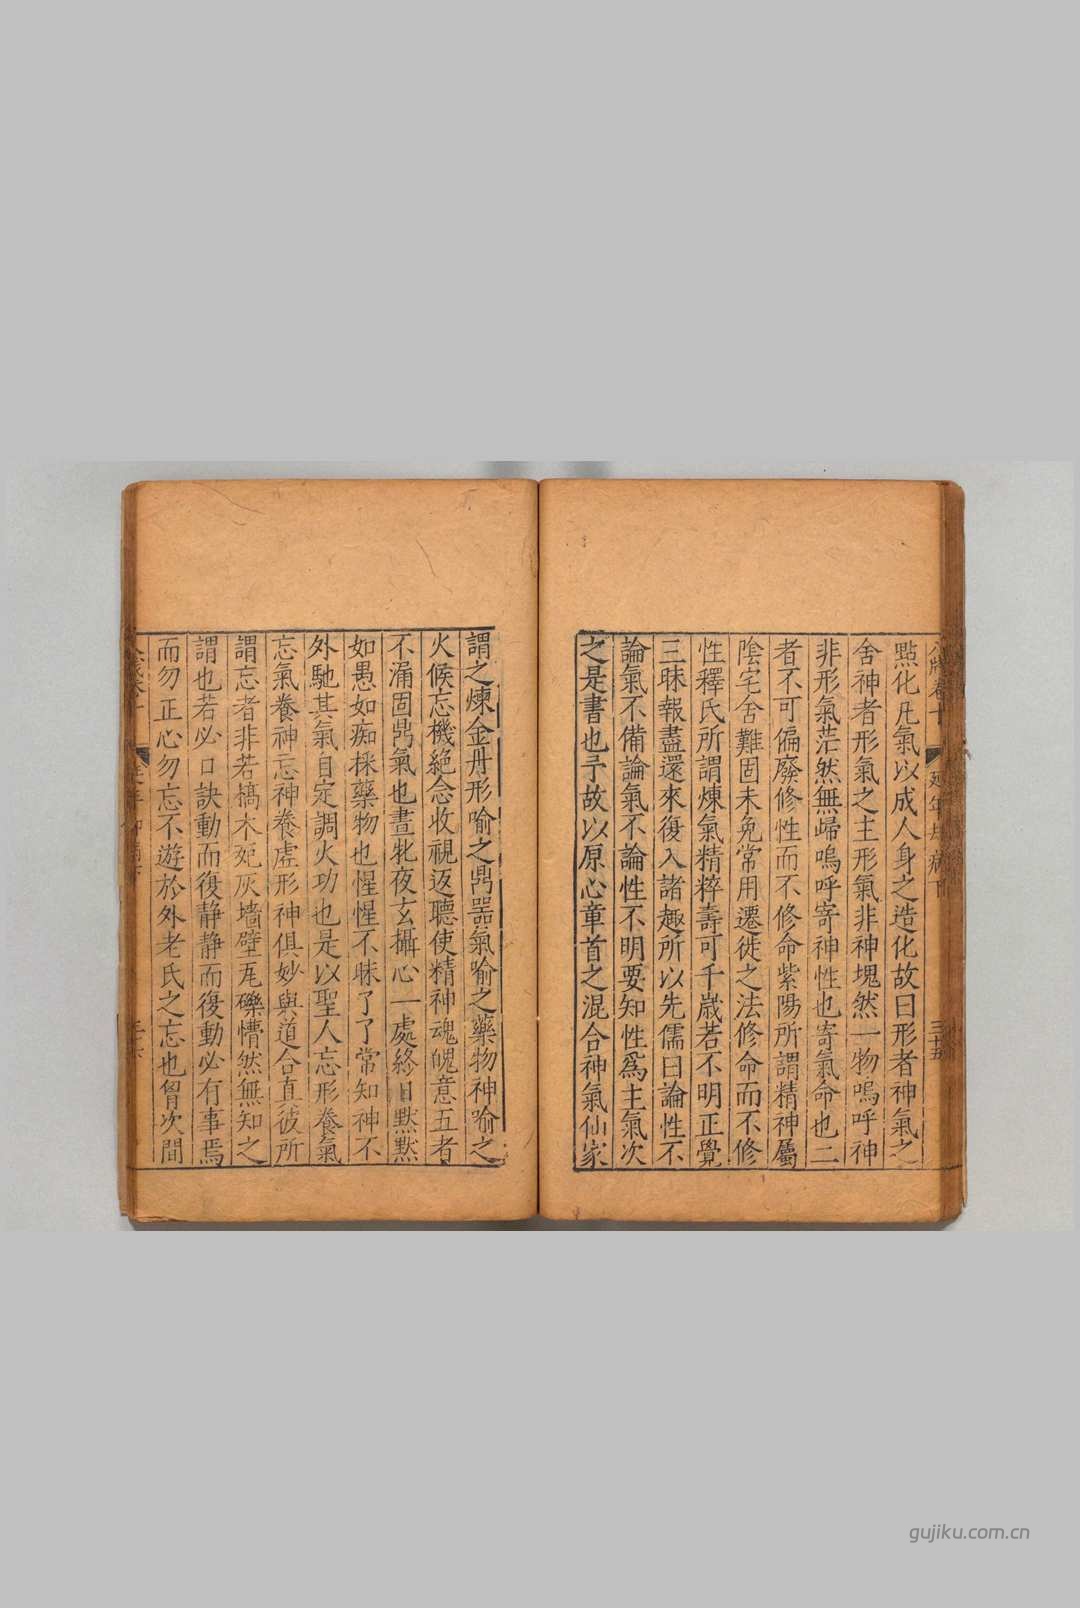 點化凡氣以成人身之造化故曰形者神氣之
舍神者形氣之主形氣非神塊然一物嗚呼神
非形氣茫然無歸嗚呼寄神性也寄氣命也二
者不可偏廢修性而不修命紫陽所謂精神屬
陰宅舍難固未免常用遷徙之法修命而不修
性釋氏所謂煉氣精粹壽可千歲若不明正覺
三昧報盡還來復入諸趣所以先儒曰論性不
論氣不備論氣不論性不明要知性爲主氣次
之是書也予故以原心章首之混合神氣仙家
謂之煉金丹形喻之鼎器氣喻之藥物神喻之
火候忘機絕念收視返聽使精神魂魄意五者
不漏固鼎氣也晝牝夜玄攝心一處終日默默
如愚如痴採藥物也惺惺不昧了了常知神不
外馳其氣自定調火功也是以聖人忘形養氣
忘氣養神忘神養虛形神俱妙與道合直彼所
謂忘者非若槁木死灰墻壁瓦礫懵然無知之
謂也若必口訣動而復静静而復動必有事焉
而勿正心勿忘不遊於外老氏之忘也胷次間
卷十
延年却病下
三十五
gujiku.com.cn